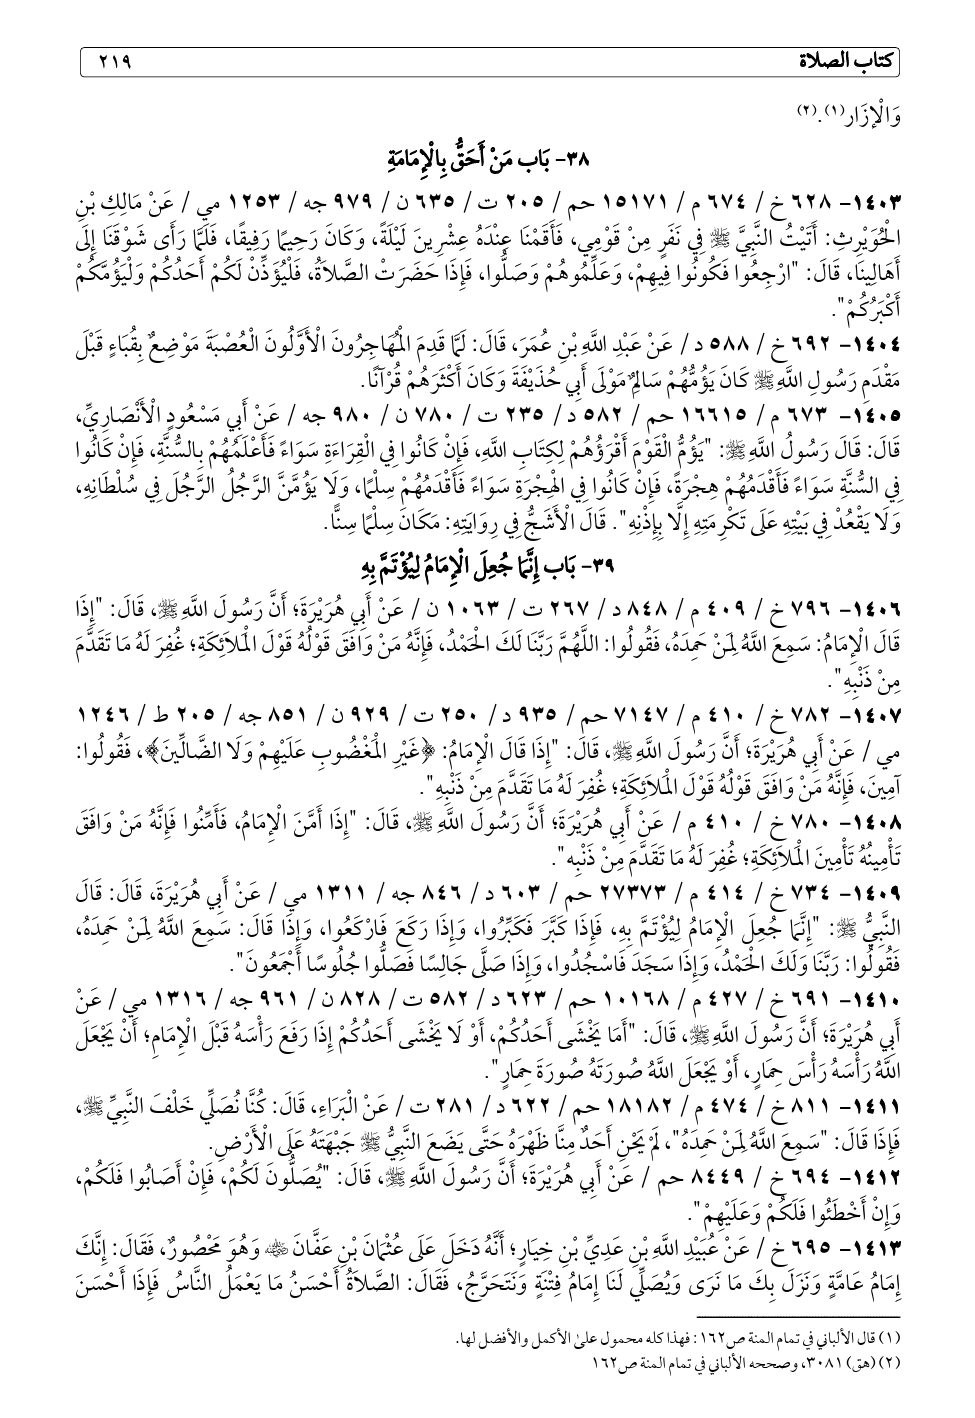 كتاب الصلاة ٢١٩
وَالْإِزَارِ(١).(٢)
٣٨- بَاب مَنْ أَحَقُّ بِالْإِمَامَةِ
١٤٠٣- ٦٢٨ خ / ٦٧٤ م / ١٥١٧١ حم / ٢٠٥ ت / ٦٣٥ ن / ٩٧٩ جه / ١٢٥٣ مي / عَنْ مَالِكِ بْنِ
الْحُوَيْرِثِ: أَتَيْتُ النَّبِيَّ ﷺ فِي نَفَرٍ مِنْ قَوْمِي، فَأَقَمْنَا عِنْدَهُ عِشْرِينَ لَيْلَةً، وَكَانَ رَحِيمًا رَفِيقًا، فَلَمَّا رَأَى شَوْقَنَا إِلَى
أَهَالِينَا، قَالَ: "ارْجِعُوا فَكُونُوا فِيهِمْ، وَعَلِّمُوهُمْ وَصَلُّوا، فَإِذَا حَضَرَتْ الصَّلَاةُ، فَلْيُؤَذِّنْ لَكُمْ أَحَدُكُمْ وَلْيَؤُمَّكُمْ
أَكْبَرُكُمْ".
١٤٠٤- ٦٩٢ خ / ٥٨٨ د/ عَنْ عَبْدِ اللَّهِ بْنِ عُمَرَ، قَالَ: لَمَّا قَدِمَ الْمُهَاجِرُونَ الْأَوَّلُونَ الْعُصْبَةَ مَوْضِعٌ بِقُبَاءٍ قَبْلَ
مَقْدَمِ رَسُولِ اللَّهِ ﷺ كَانَ يَؤُمُّهُمْ سَالِمٌ مَوْلَى أَبِي حُذَيْفَةَ وَكَانَ أَكْثَرَهُمْ قُرْآنًا.
١٤٠٥- ٦٧٣ م / ١٦٦١٥ حم / ٥٨٢ د/ ٢٣٥ ت / ٧٨٠ ن / ٩٨٠ جه / عَنْ أَبِي مَسْعُودٍ الْأَنْصَارِيِّ،
قَالَ: قَالَ رَسُولُ اللَّهِ ﷺ: "يَؤُمُّ الْقَوْمَ أَقْرَؤُهُمْ لِكِتَابِ اللَّهِ، فَإِنْ كَانُوا فِي الْقِرَاءَةِ سَوَاءً فَأَعْلَمُهُمْ بِالسُّنَّةِ، فَإِنْ كَانُوا
فِي السُّنَّةِ سَوَاءً فَأَقْدَمُهُمْ هِجْرَةً، فَإِنْ كَانُوا فِي الْهِجْرَةِ سَوَاءً فَأَقْدَمُهُمْ سِلْمًا، وَلَا يَؤُمَّنَّ الرَّجُلُ الرَّجُلَ فِي سُلْطَانِهِ،
وَلَا يَقْعُدْ فِي بَيْتِهِ عَلَى تَكْرِمَتِهِ إِلَّا بِإِذْنِهِ". قَالَ الْأَشَجُّ فِي رِوَايَتِهِ: مَكَانَ سِلْمًا سِنًّا.
٣٩- بَاب إِنَّمَا جُعِلَ الْإِمَامُ لِيُؤْتَمَّ بِهِ
١٤٠٦- ٧٩٦ خ / ٤٠٩ م / ٨٤٨ د/ ٢٦٧ ت / ١٠٦٣ ن / عَنْ أَبِي هُرَيْرَةَ؛ أَنَّ رَسُولَ اللَّهِ ﷺ، قَالَ: "إِذَا
قَالَ الْإِمَامُ: سَمِعَ اللَّهُ لِمَنْ حَمِدَهُ، فَقُولُوا: اللَّهُمَّ رَبَّنَا لَكَ الْحَمْدُ، فَإِنَّهُ مَنْ وَافَقَ قَوْلُهُ قَوْلَ الْمَلَائِكَةِ؛ غُفِرَ لَهُ مَا تَقَدَّمَ
مِنْ ذَنْبِهِ".
١٤٠٧- ٧٨٢ خ / ٤١٠ م / ٧١٤٧ حم / ٩٣٥ د/ ٢٥٠ ت / ٩٢٩ ن / ٨٥١ جه / ٢٠٥ ط / ١٢٤٦
مي / عَنْ أَبِي هُرَيْرَةَ؛ أَنَّ رَسُولَ اللَّهِ ﷺ، قَالَ: "إِذَا قَالَ الْإِمَامُ: ﴿غَيْرِ الْمَغْضُوبِ عَلَيْهِمْ وَلَا الضَّالِّينَ﴾، فَقُولُوا:
آمِينَ، فَإِنَّهُ مَنْ وَافَقَ قَوْلُهُ قَوْلَ الْمَلَائِكَةِ؛ غُفِرَ لَهُ مَا تَقَدَّمَ مِنْ ذَنْبِهِ".
١٤٠٨- ٧٨٠ خ / ٤١٠ م / عَنْ أَبِي هُرَيْرَةَ؛ أَنَّ رَسُولَ اللَّهِ ﷺ، قَالَ: "إِذَا أَمَّنَ الْإِمَامُ، فَأَمِّنُوا فَإِنَّهُ مَنْ وَافَقَ
تَأْمِينُهُ تَأْمِينَ الْمَلَائِكَةِ؛ غُفِرَ لَهُ مَا تَقَدَّمَ مِنْ ذَنْبِه".
١٤٠٩- ٧٣٤ خ / ٤١٤ م / ٢٧٣٧٣ حم / ٦٠٣ د/ ٨٤٦ جه / ١٣١١ مي / عَنْ أَبِي هُرَيْرَةَ، قَالَ: قَالَ
النَّبِيُّ ﷺ: "إِنَّمَا جُعِلَ الْإِمَامُ لِيُؤْتَمَّ بِهِ، فَإِذَا كَبَّرَ فَكَبِّرُوا، وَإِذَا رَكَعَ فَارْكَعُوا، وَإِذَا قَالَ: سَمِعَ اللَّهُ لِمَنْ حَمِدَهُ،
فَقُولُوا: رَبَّنَا وَلَكَ الْحَمْدُ، وَإِذَا سَجَدَ فَاسْجُدُوا، وَإِذَا صَلَّى جَالِسًا فَصَلُّوا جُلُوسًا أَجْمَعُونَ".
١٤١٠- ٦٩١ خ / ٤٢٧ م / ١٠١٦٨ حم / ٦٢٣ د/ ٥٨٢ ت / ٨٢٨ ن / ٩٦١ جه / ١٣١٦ مي / عَنْ
أَبِي هُرَيْرَةَ؛ أَنَّ رَسُولَ اللَّهِ ﷺ، قَالَ: "أَمَا يَخْشَى أَحَدُكُمْ، أَوْ لَا يَخْشَى أَحَدُكُمْ إِذَا رَفَعَ رَأْسَهُ قَبْلَ الْإِمَامِ؛ أَنْ يَجْعَلَ
اللَّهُ رَأْسَهُ رَأْسَ حِمَارٍ، أَوْ يَجْعَلَ اللَّهُ صُورَتَهُ صُورَةَ حِمَارٍ".
١٤١١- ٨١١ خ / ٤٧٤ م / ١٨١٨٢ حم / ٦٢٢ د/ ٢٨١ ت / عَنْ الْبَرَاءِ، قَالَ: كُنَّا نُصَلِّي خَلْفَ النَّبِيِّ ﷺ،
فَإِذَا قَالَ: "سَمِعَ اللَّهُ لِمَنْ حَمِدَهُ"، لَمْ يَحْنِ أَحَدٌ مِنَّا ظَهْرَهُ حَتَّى يَضَعَ النَّبِيُّ ﷺ جَبْهَتَهُ عَلَى الْأَرْضِ.
١٤١٢- ٦٩٤ خ / ٨٤٤٩ حم / عَنْ أَبِي هُرَيْرَةَ؛ أَنَّ رَسُولَ اللَّهِ ﷺ، قَالَ: "يُصَلُّونَ لَكُمْ، فَإِنْ أَصَابُوا فَلَكُمْ،
وَإِنْ أَخْطَئُوا فَلَكُمْ وَعَلَيْهِمْ".
١٤١٣- ٦٩٥ خ / عَنْ عُبَيْدِ اللَّهِ بْنِ عَدِيِّ بْنِ خِيَارٍ؛ أَنَّهُ دَخَلَ عَلَى عُثْمَانَ بْنِ عَفَّانَ ﵁ وَهُوَ مَحْصُورٌ، فَقَالَ: إِنَّكَ
إِمَامُ عَامَّةٍ وَنَزَلَ بِكَ مَا نَرَى وَيُصَلِّي لَنَا إِمَامُ فِتْنَةٍ وَنَتَحَرَّجُ، فَقَالَ: الصَّلَاةُ أَحْسَنُ مَا يَعْمَلُ النَّاسُ فَإِذَا أَحْسَنَ
(١) قال الألباني في تمام المنة ص١٦٢: فهذا كله محمول على الأكمل والأفضل لها.
(٢) (هق) ٣٠٨١، وصححه الألباني في تمام المنة ص١٦٢